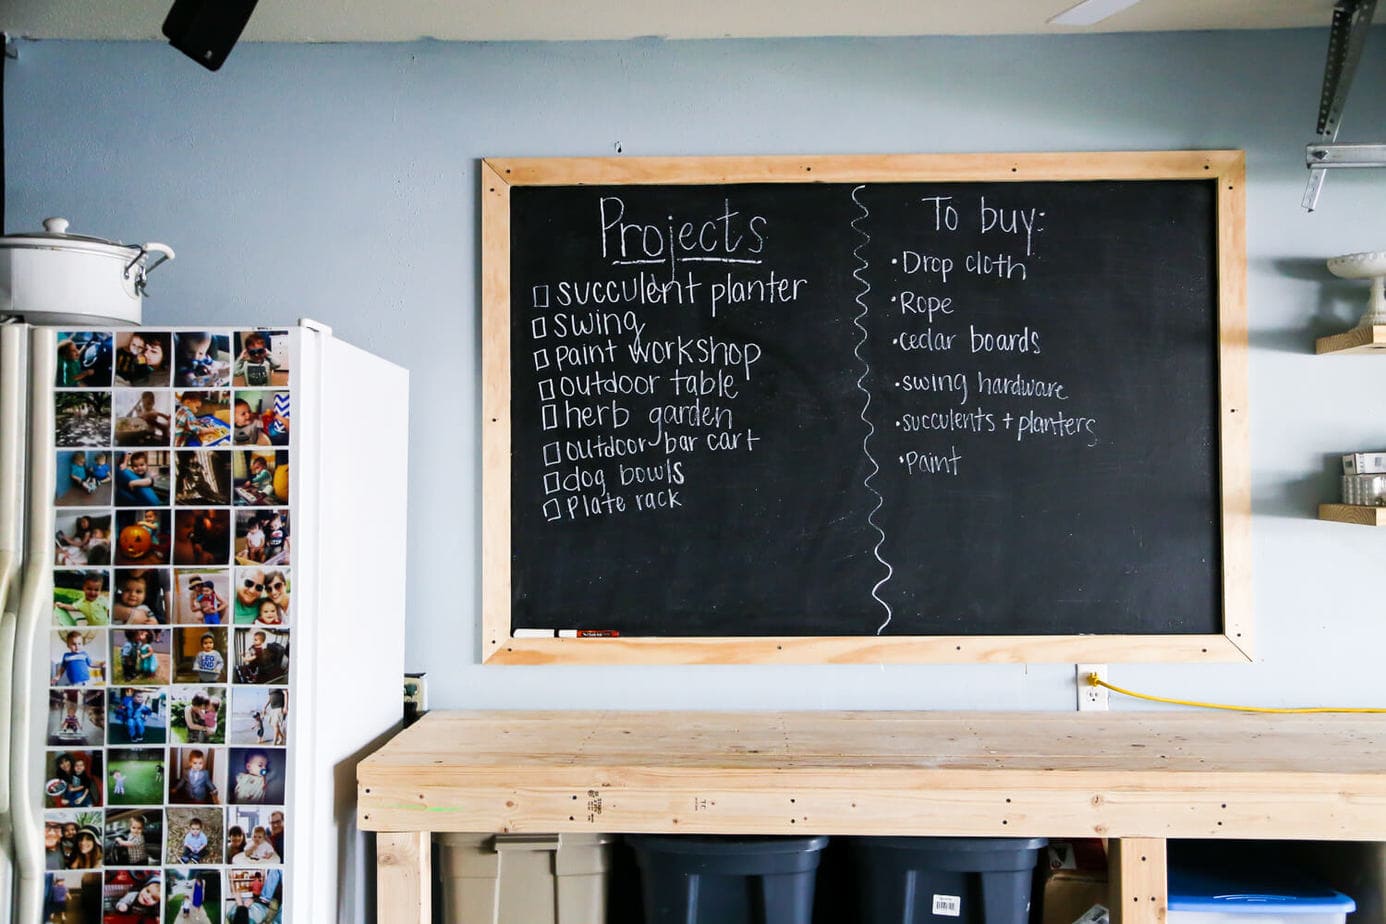 Projects
succulent planter
swing
paint workshop
outdoor table
herb garden
outdoor bar cart
dog bowls
Plate rack
To buy:
•Drop cloth
•Rope
•cedar boards
•swing hardware
•succulents + planters
•Paint